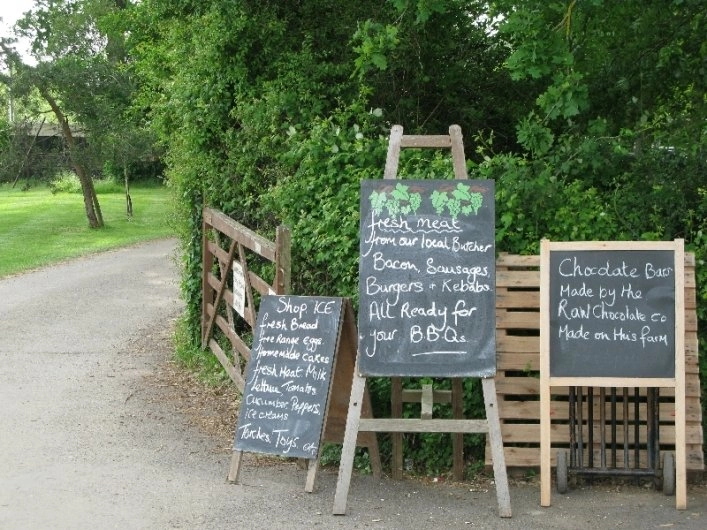 Shop ICE
fresh Bread
free Range eggs
homemade cakes
fresh Meat Milk
Lettuce Tomatos
Cucumber Peppers
ice creams
Torches, Toys.
fresh meat
from our local Butcher
Bacon, Sausages,
Burgers + Kebabs
All Ready for
your B.B.Qs.
Chocolate Bars
Made by the
RAW Chocolate co
Made on this farm